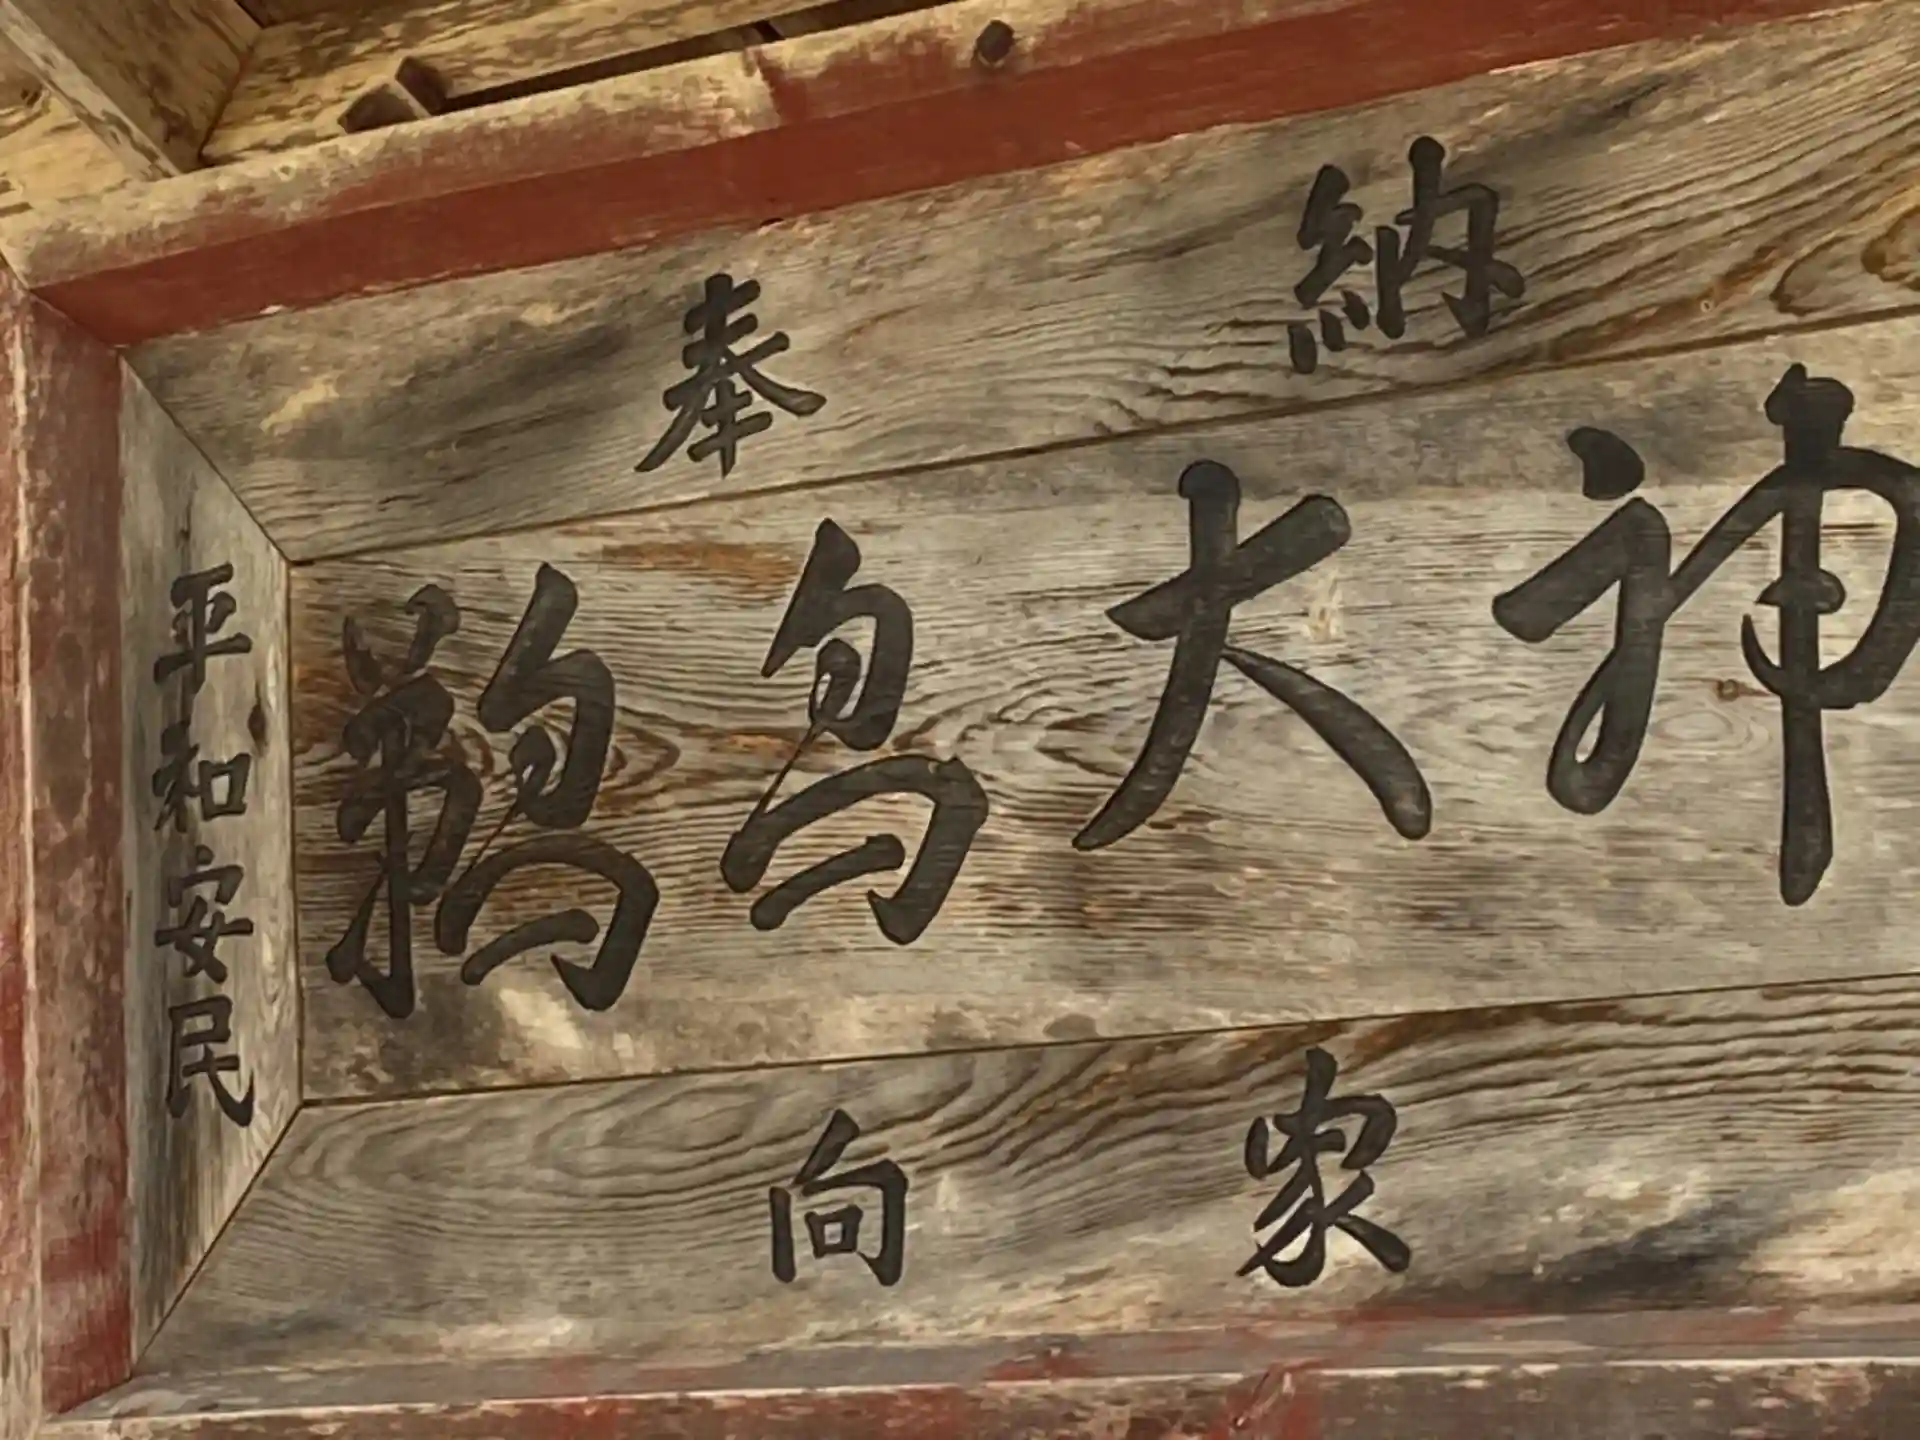 奉納
鵜鳥大神
平和安民
向家